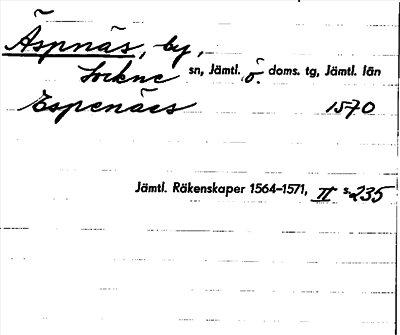 Äspnäs, by,
Lockne sn, Jämtl. ö. doms. tg, Jämtl. län
Espenäes 1570
Jämtl. Räkenskaper 1564-1571, II s. 235